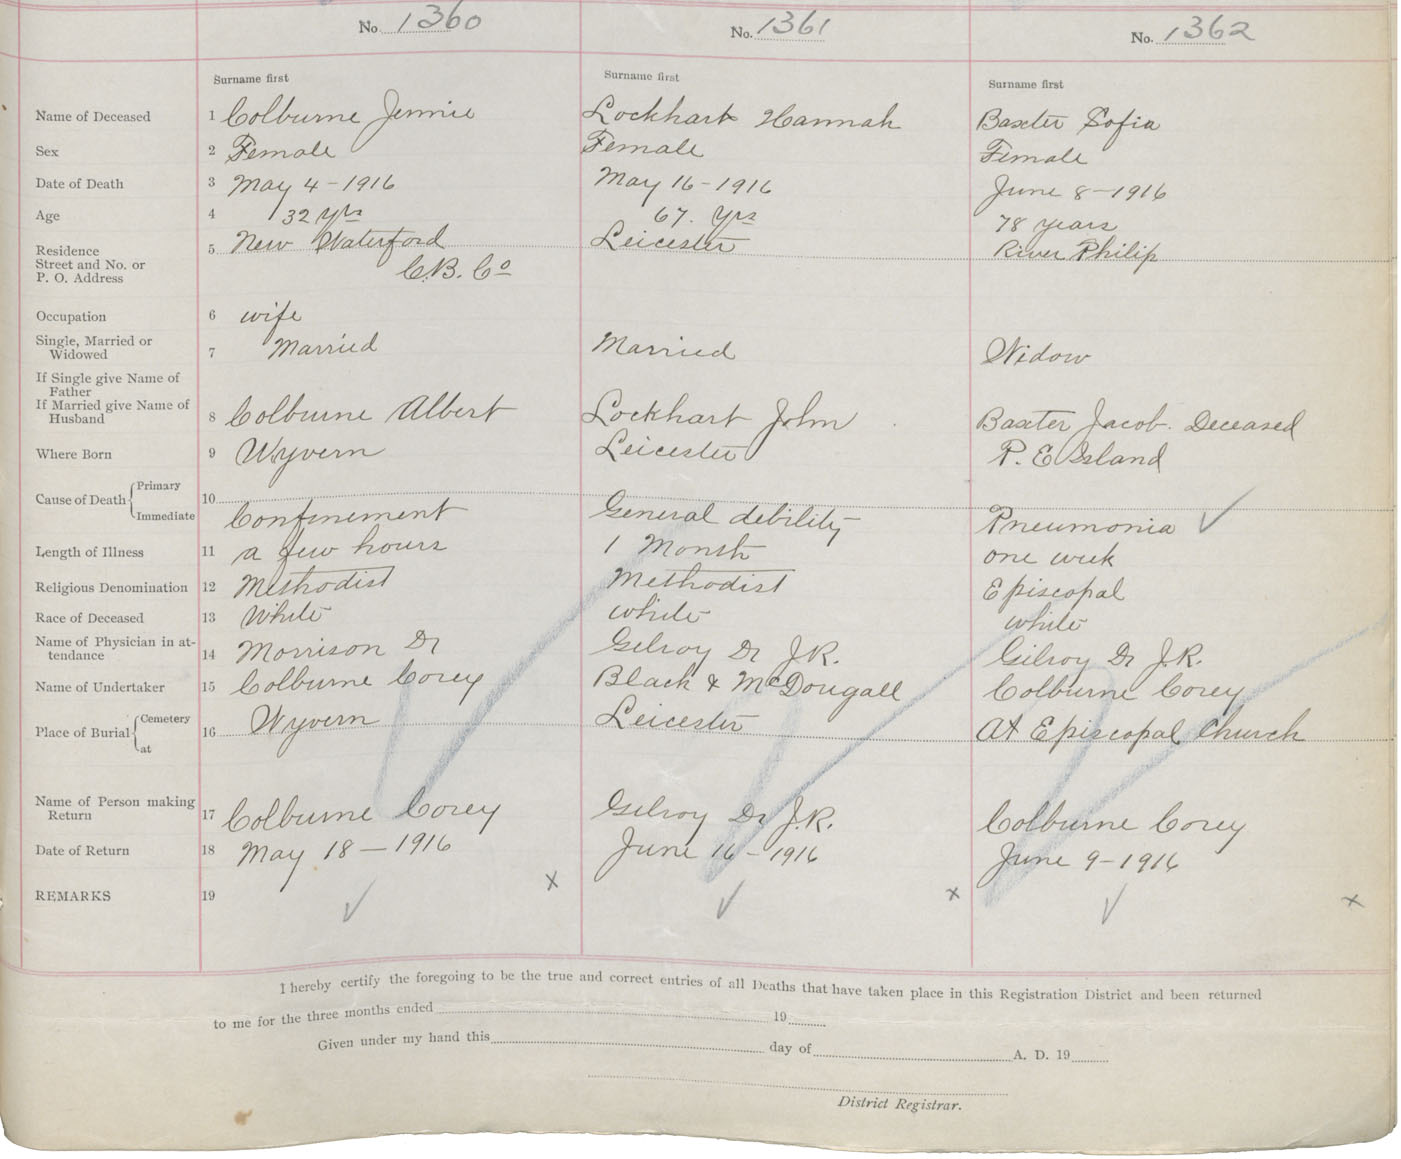 No. 1360 No. 1361 No. 1362
Surname first Surname first Surname first
Name of Deceased 1 Colburne Jennie Lockhart Hannah Baxter Sofia
Sex 2 Female Female Female
Date of Death 3 May 4-1916 May 16-1916 June 8-1916
Age 4 32 yrs 67. Yrs 78 years
Residence 5 New Waterford Leicester River Philip
Street and No. or C.B. Co
P. O. Address
Occupation 6 wife
Single, Married or
Widowed 7 Married Married Widow
If Single give Name of
Father
If Married give Name of
Husband 8 Colburne Albert Lockhart John Baxter Jacob. Deceased
Where Born 9 Wyvern Leicester P. E Island
Primary
Cause of Death 10
Immediate Confinement General debility Pneumonia ✓
Length of Illness 11 a few hours 1 Month one week
Religious Denomination 12 Methodist Methodist Episcopal
Race of Deceased 13 White white white
Name of Physician in at-
tendance 14 Morrison Dr Gilroy Dr J.R. Gilroy Dr J.R.
Name of Undertaker 15 Colburne Corey Black & McDougall Colburne Corey
Cemetery
Place of Burial 16 Wyvern Leicester At Episcopal Church
at
Name of Person making
Return 17 Colburne Corey Gilroy Dr J.R. Colburne Corey
Date of Return 18 May 18-1916 June 16-1916 June 9-1916
REMARKS 19 ✓ x ✓ x ✓ x
I hereby certify the foregoing to be the true and correct entries of all Deaths that have taken place in this Registration District and been returned
to me for the three months ended 19
Given under my hand this day of A. D. 19
District Registrar.